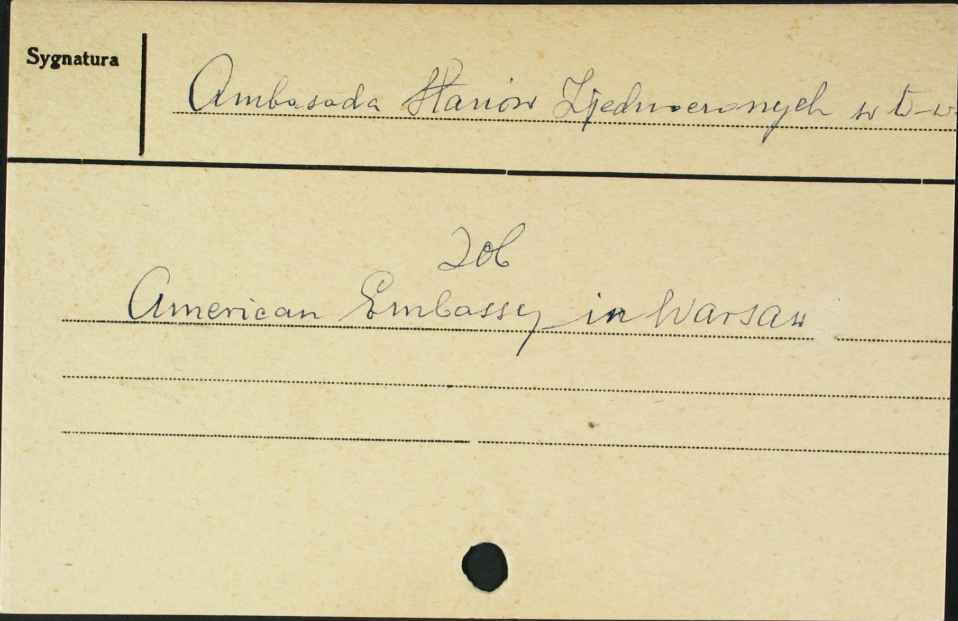 Sygnatura
Ambasada Stanów Zjednoczonych w W-w
zob
American Embassy in Warsaw